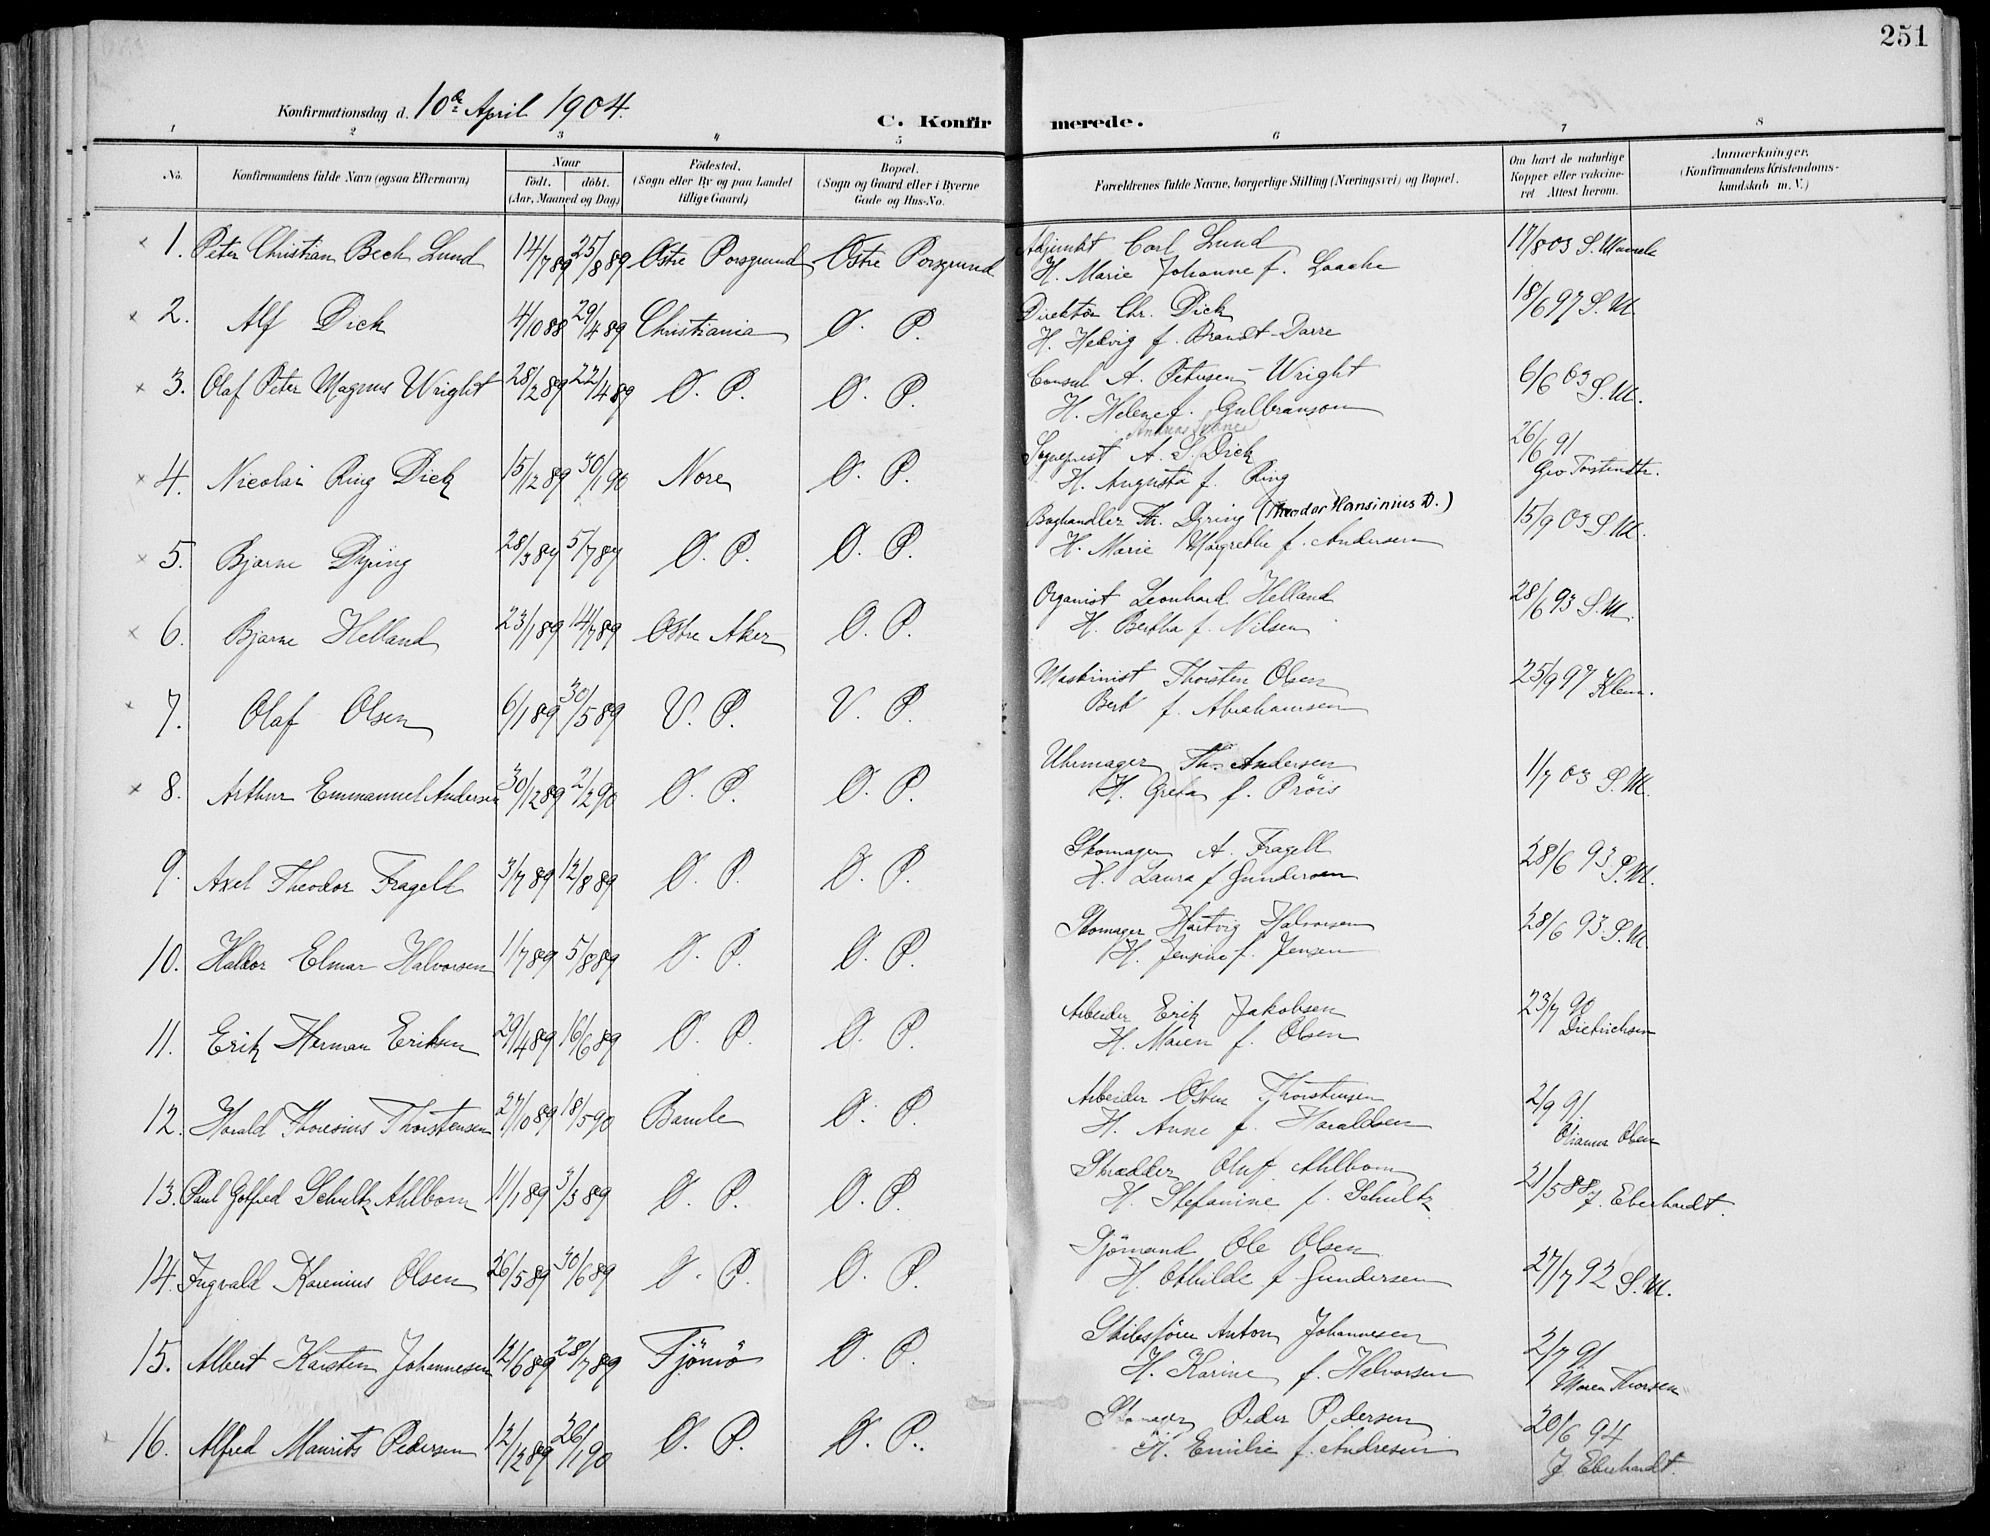 251
Konfirmationsdag d. 10de April 1904.
C. Konfirmerede.
1 2 3 4 5 6 7 8
No.
Konfirmandens fulde Navn (ogsaa Efternavn)
Naar
født. døbt.
(Aar, Maaned og Dag)
Fødested.
(Sogn eller By og paa Landet
tillige Gaard)
Bopæl.
(Sogn og Gaard eller i Byerne
Gade og Hus-No.
Forældrenes fulde Navne, borgerlige Stilling (Næringsvei) og Bopæl.
Om havt de naturlige
Kopper eller vaccine-
ret Attest herom.
Anmærkninger.
(Konfirmandens Kristendoms-
kundskab m. V.)
1. Peter Christian Bech Lund 14/7 89 25/8 89 Østre Porsgrund Østre Porsgrund Adjunkt Carl Lund 17/8 03 S. Munck
H. Marie Johanne f. Laache
2. Alf Dick 4/10 88 29/4 89 Christiania Ø. P. Direktør Chr. Dick 18/6 97 S. M.
H. Hedvig f. Brandt-Darre
3. Olaf Peter Magnus Wright 28/2 89 22/4 89 Ø. P. Ø. P. Consul A. Petersen-Wright 6/6 03 S. M.
H. Helene f. Gulbranson
4. Nicolai Ring Dick 15/12 89 30/1 90 Nore Ø. P. Sognepræst A. S. Dick 26/6 91
H. Augusta f. Ring Gro Torstendtr.
5. Bjarne Dyring 28/3 89 5/7 89 Ø. P. Ø. P. Boghandler Th. Dyring (Theodor Hansinius D.) 15/9 03 S. M.
H. Marie Margrethe f. Andersen
6. Bjarne Helland 23/1 89 14/7 89 Østre Aker Ø. P. Organist Leonhard Helland 28/6 93 S. M.
H. Bertha f. Nilsen
7. Olaf Olsen 6/1 89 30/5 89 V. P. V. P. Maskinist Thorsten Olsen 25/9 97 Klem.
Bert f. Abrahamsen
8. Arthur Emmanuel Andersen 30/12 89 2/2 90 Ø. P. Ø. P. Uhrmager Th. Andersen 1/7 03 S. M.
H. Greta f. Prøis
9. Axel Theodor Fragell 3/7 89 12/8 89 Ø. P. Ø. P. Skomager A. Fragell 28/6 93 S. M.
H. Laura f. Gundersen
10. Haldor Elmar Halvorsen 1/7 89 5/8 89 Ø. P. Ø. P. Skomager Hartvig Halvorsen 28/6 93 S. M.
H. Jensine f. Jensen
11. Erik Herman Eriksen 29/4 89 16/6 89 Ø. P. Ø. P. Arbeider Erik Jakobsen 23/7 90
H. Maren f. Olsen Dietrichsen
12. Harald Thoresius Thorstensen 27/10 89 18/5 90 Bamle Ø. P. Arbeider Østen Thorstensen 2/9 91
H. Anne f. Haraldsen Olsen
13. Paul Gotfred Schultz Ahlbom 11/1 89 3/3 89 Ø. P. Ø. P. Skrædder Oluf Ahlbom 21/5 88 J. Eberhardt.
H. Stefanine f. Schultz
14. Ingvald Karenius Olsen 26/5 89 30/6 89 Ø. P. Ø. P. Sjømand Ole Olsen 27/7 92 S. M.
H. Othilde f. Gundersen
15. Albert Karsten Johannesen 12/6 89 28/7 89 Tjømø Ø. P. Skibsfører Anton Johannesen 2/7 91
H. Karine f. Halvorsen Maren Thorsen
16. Alfred Maurits Pedersen 12/12 89 26/1 90 Ø. P. Ø. P. Skomager Peder Pedersen 20/6 94
H. Emilie f. Andresen J. Eberhardt.